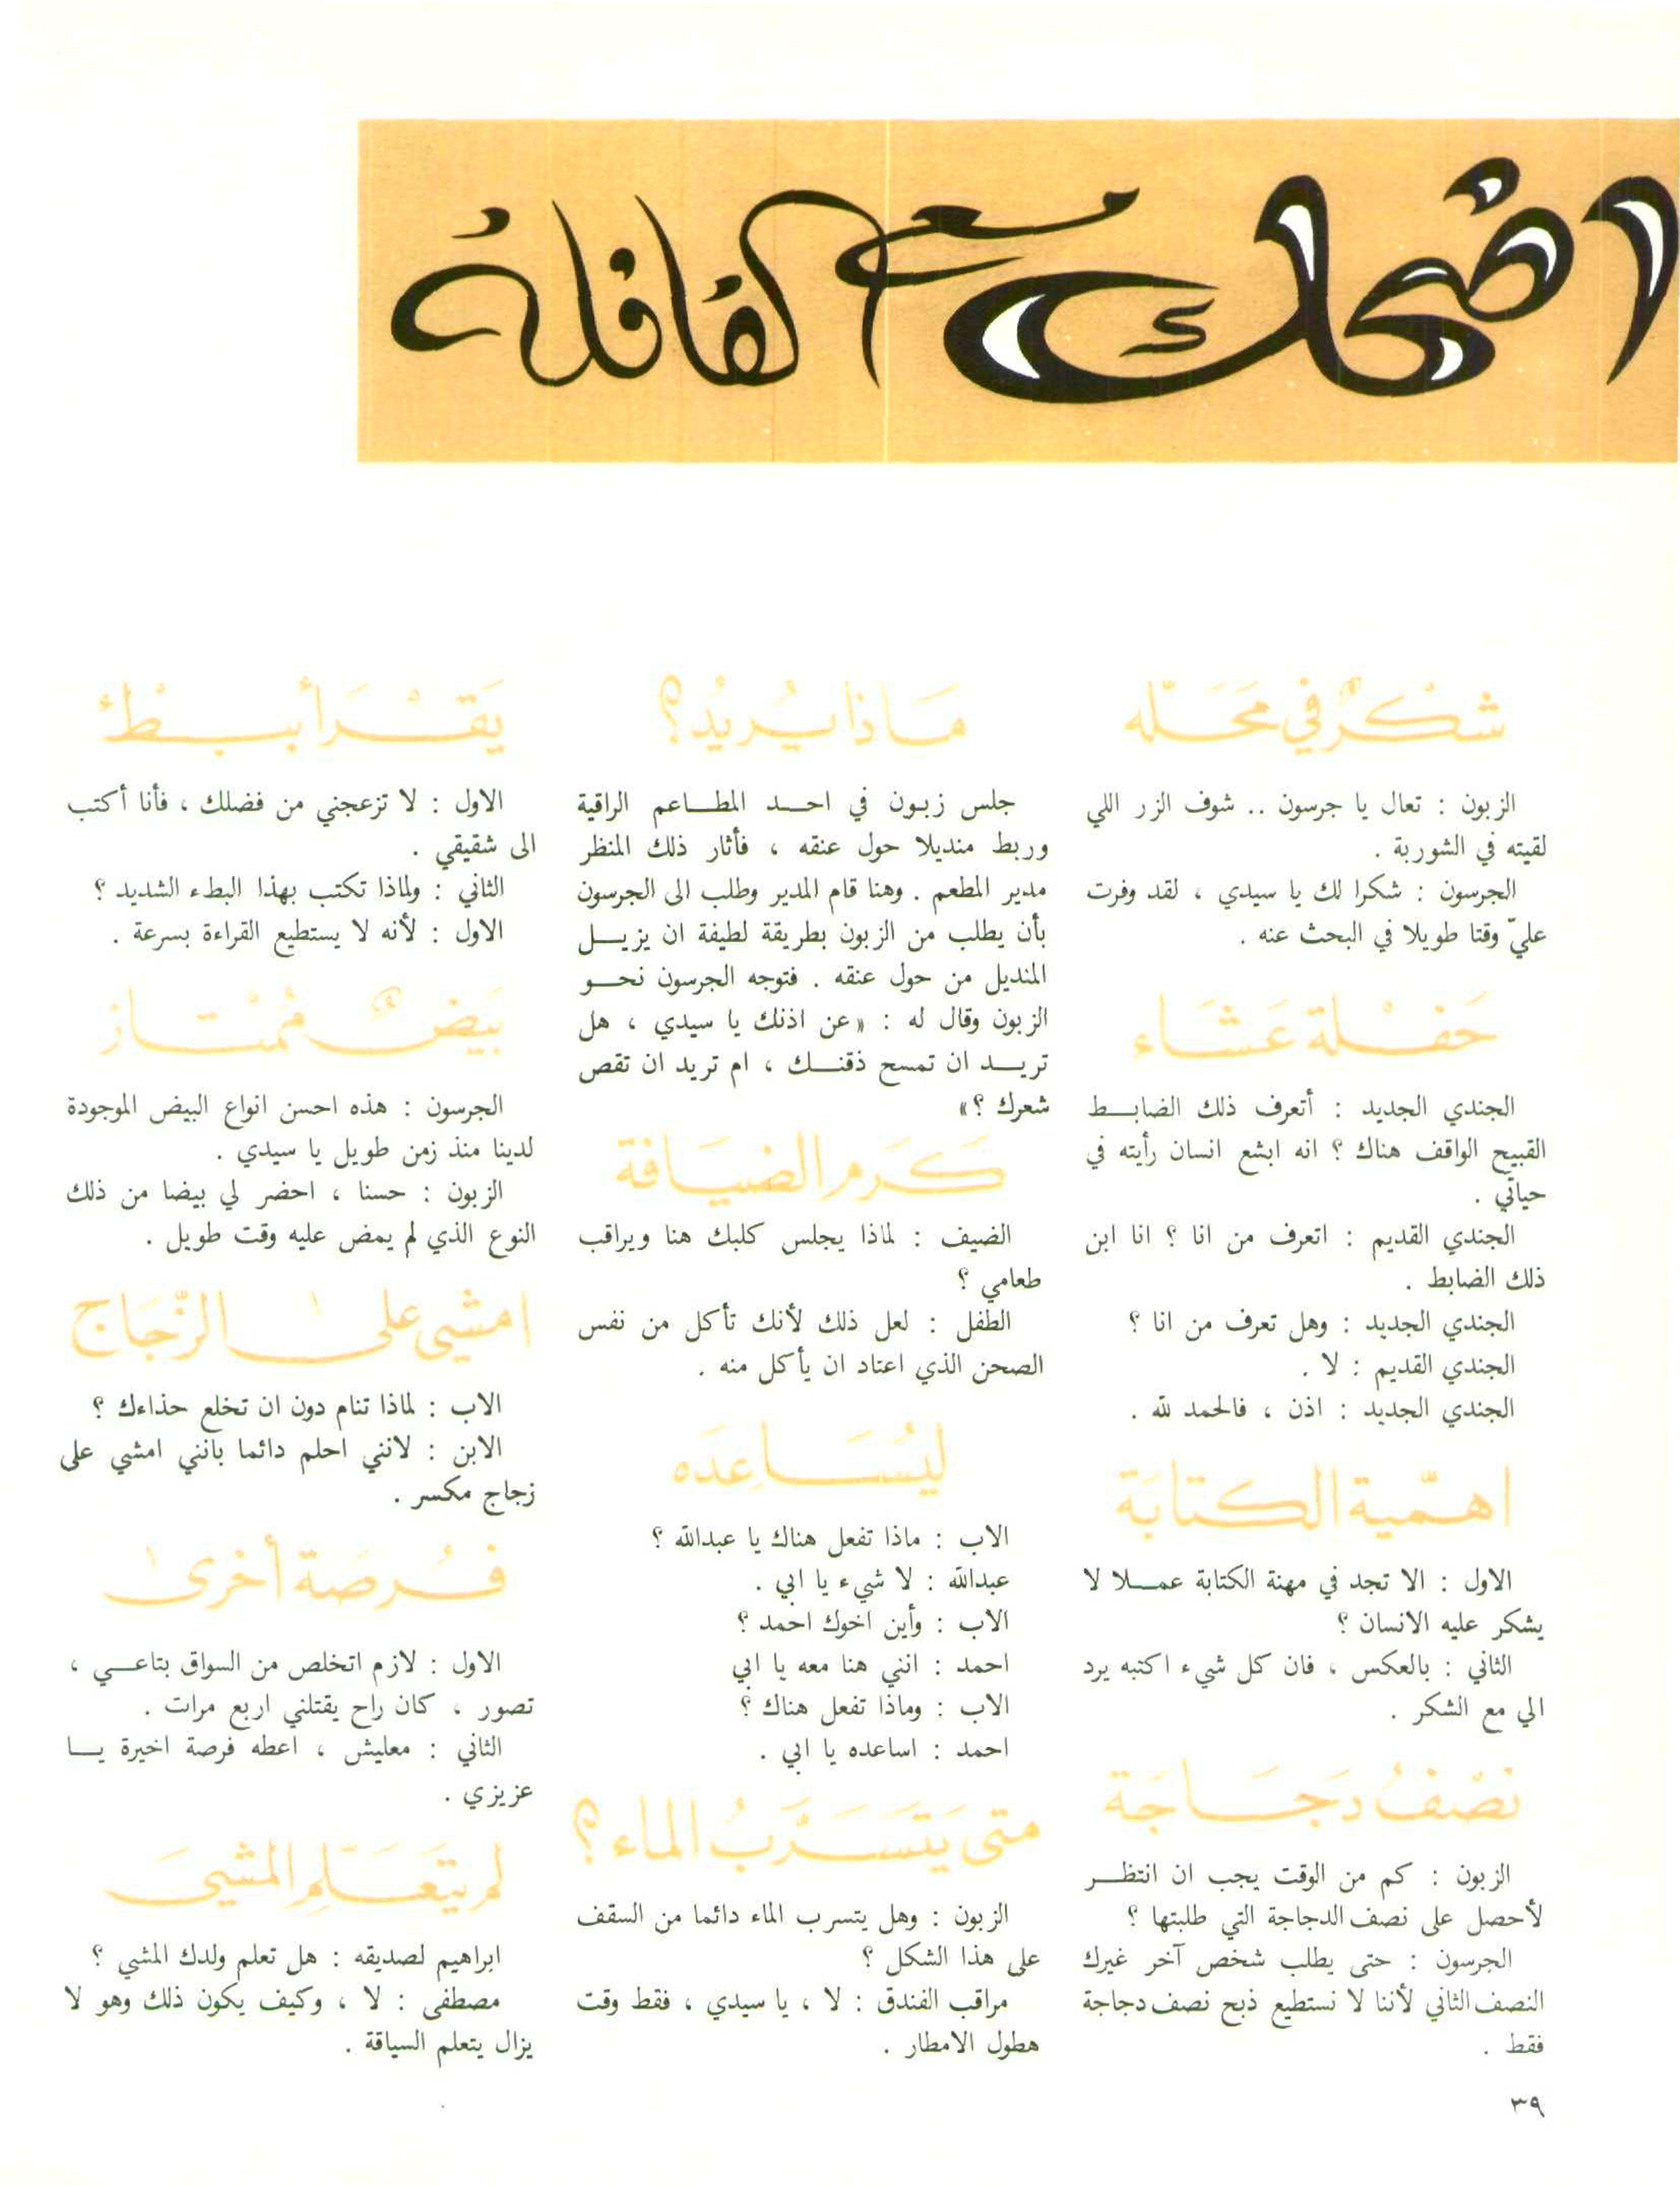 اضحك مع القافلة
شكر في محله
الزبون : تعال يا جرسون .. شوف الزر اللي
لقيته في الشوربة .
الجرسون : شكرا لك يا سيدي ، لقد وفرت
عليّ وقتا طويلا في البحث عنه .
حفلة عشاء
الجندي الجديد : أتعرف ذلك الضابط
القبيح الواقف هناك ؟ انه ابشع انسان رأيته في
حياتي .
الجندي القديم : اتعرف من انا ؟ انا ابن
ذلك الضابط .
الجندي الجديد : وهل تعرف من انا ؟
الجندي القديم : لا .
الجندي الجديد : اذن ، فالحمد لله .
اهمية الكتابة
الاول : الا تجد في مهنة الكتابة عملا لا
يشكر عليه الانسان ؟
الثاني : بالعكس ، فان كل شيء اكتبه يرد
الي مع الشكر .
نصف دجاجة
الزبون : كم من الوقت يجب ان انتظر
لأحصل على نصف الدجاجة التي طلبتها ؟
الجرسون : حتى يطلب شخص آخر غيرك
النصف الثاني لأننا لا نستطيع ذبح نصف دجاجة
فقط .
ماذا يريد؟
جلس زبون في احد المطاعم الراقية
وربط منديلا حول عنقه ، فأثار ذلك المنظر
مدير المطعم . وهنا قام المدير وطلب الى الجرسون
بأن يطلب من الزبون بطريقة لطيفة ان يزيل
المنديل من حول عنقه . فتوجه الجرسون نحو
الزبون وقال له : «عن اذنك يا سيدي ، هل
تريد ان تمسح ذقنك ، ام تريد ان تقص
شعرك ؟»
كرم الضيافة
الضيف : لماذا يجلس كلبك هنا ويراقب
طعامي ؟
الطفل : لعل ذلك لأنك تأكل من نفس
الصحن الذي اعتاد ان يأكل منه .
ليساعده
الاب : ماذا تفعل هناك يا عبدالله ؟
عبدالله : لا شيء يا ابي .
الاب : وأين اخوك احمد ؟
احمد : انني هنا معه يا ابي
الاب : وماذا تفعل هناك ؟
احمد : اساعده يا ابي .
متى يتسرب الماء؟
الزبون : وهل يتسرب الماء دائما من السقف
على هذا الشكل ؟
مراقب الفندق : لا ، يا سيدي ، فقط وقت
هطول الامطار .
يقرأ ببطء
الاول : لا تزعجني من فضلك ، فأنا أكتب
الى شقيقي .
الثاني : ولماذا تكتب بهذا البطء الشديد ؟
الاول : لأنه لا يستطيع القراءة بسرعة .
بيض ممتاز
الجرسون : هذه احسن انواع البيض الموجودة
لدينا منذ زمن طويل يا سيدي .
الزبون : حسنا ، احضر لي بيضا من ذلك
النوع الذي لم يمض عليه وقت طويل .
امشي على الزجاج
الاب : لماذا تنام دون ان تخلع حذاءك ؟
الابن : لانني احلم دائما بانني امشي على
زجاج مكسر .
فرصة أخرى
الاول : لازم اتخلص من السواق بتاعي ،
تصور ، كان راح يقتلني اربع مرات .
الثاني : معليش ، اعطه فرصة اخيرة يا
عزيزي .
لم يتعلم المشي
ابراهيم لصديقه : هل تعلم ولدك المشي ؟
مصطفى : لا ، وكيف يكون ذلك وهو لا
يزال يتعلم السياقة .
٣٩